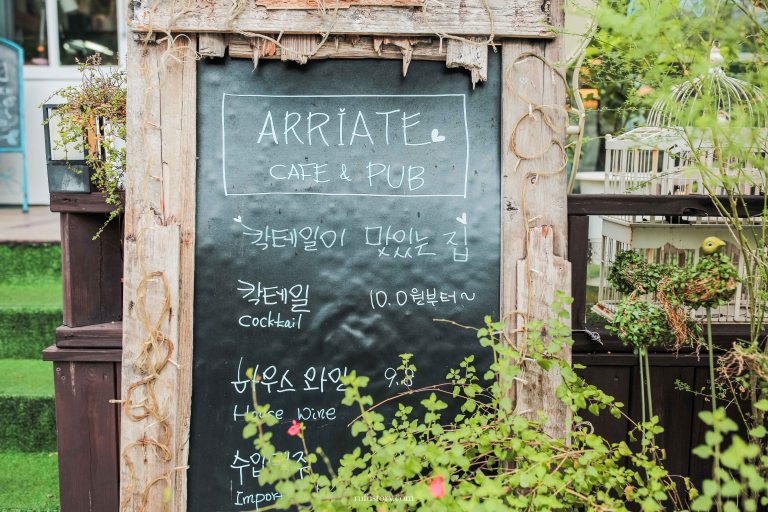 ARRIATE
CAFE & PUB
칵테일이 맛있는 집
칵테일 10.0월부터~
cocktail
하우스 와인 9.8
House wine
수입
Impor
rulustory.com